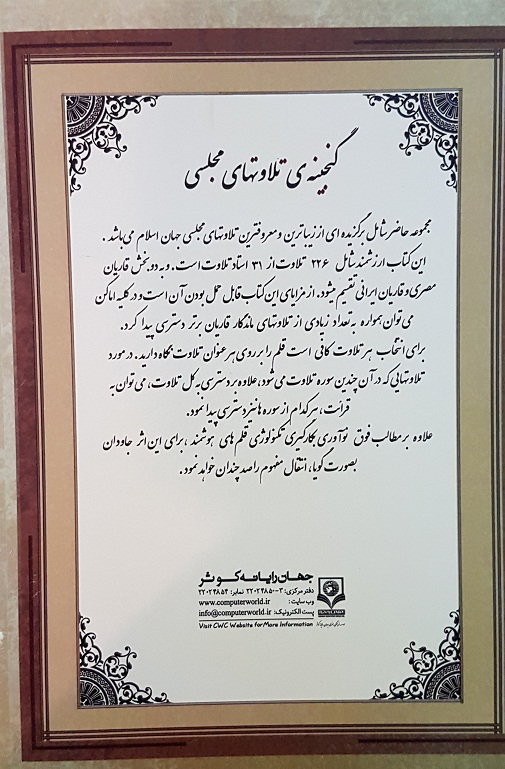 گنجینه‌ی تلاوتهای مجلسی
مجموعه حاضر شامل برگزیده ای از زیباترین و معروفترین تلاوتهای مجلسی جهان اسلام می‌باشد .
این کتاب ارزشمند شامل ۲۲۶ تلاوت از ۳۱ استاد تلاوت است. و به دو بخش قاریان
مصری و قاریان ایرانی تقسیم میشود. از مزایای این کتاب قابل حمل بودن آن است و در کلیه اماکن
می توان همواره به تعداد زیادی از تلاوتهای ماندگار قاریان برتر دسترسی پیدا کرد.
برای انتخاب هر تلاوت کافی است قلم را بر روی هر عنوان تلاوت نگاه دارید. در مورد
تلاوتهایی که در آن چندین سوره تلاوت می شود، علاوه بر دسترسی به کل تلاوت، می توان به
قرائت، هر کدام از سوره ها نیز دسترسی پیدا نمود.
علاوه بر مطالب فوق نوآوری بکارگیری تکنولوژی قلم های هوشمند ، برای این اثر جاودان
بصورت گویا، انتقال مفهوم را صد چندان خواهد نمود.
جهان رایانه کوثر
دفتر مرکزی: ۳-۲۲۰۲۴۸۵۰ نمابر: ۲۲۰۲۴۸۵۴
وب سایت : www.computerworld.ir
پست الکترونیک: info@computerworld.ir
Visit CWC Website for More Information